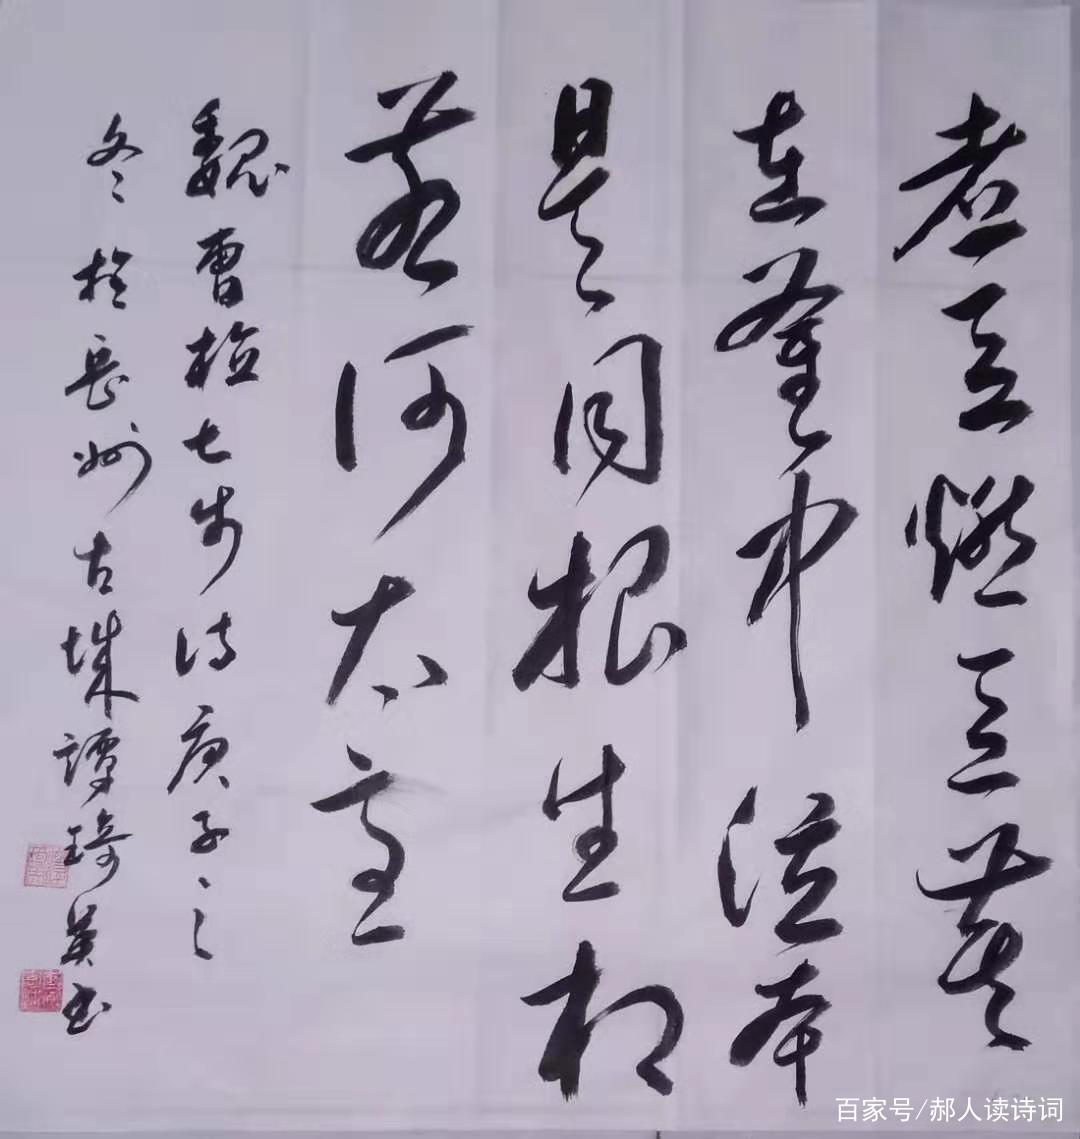 煮豆燃豆萁
在釜中泣本
是同根生相
煎何太急
魏曹植七步诗庚子之
冬於長州古城譚琦英书
百家号/郝人读诗词